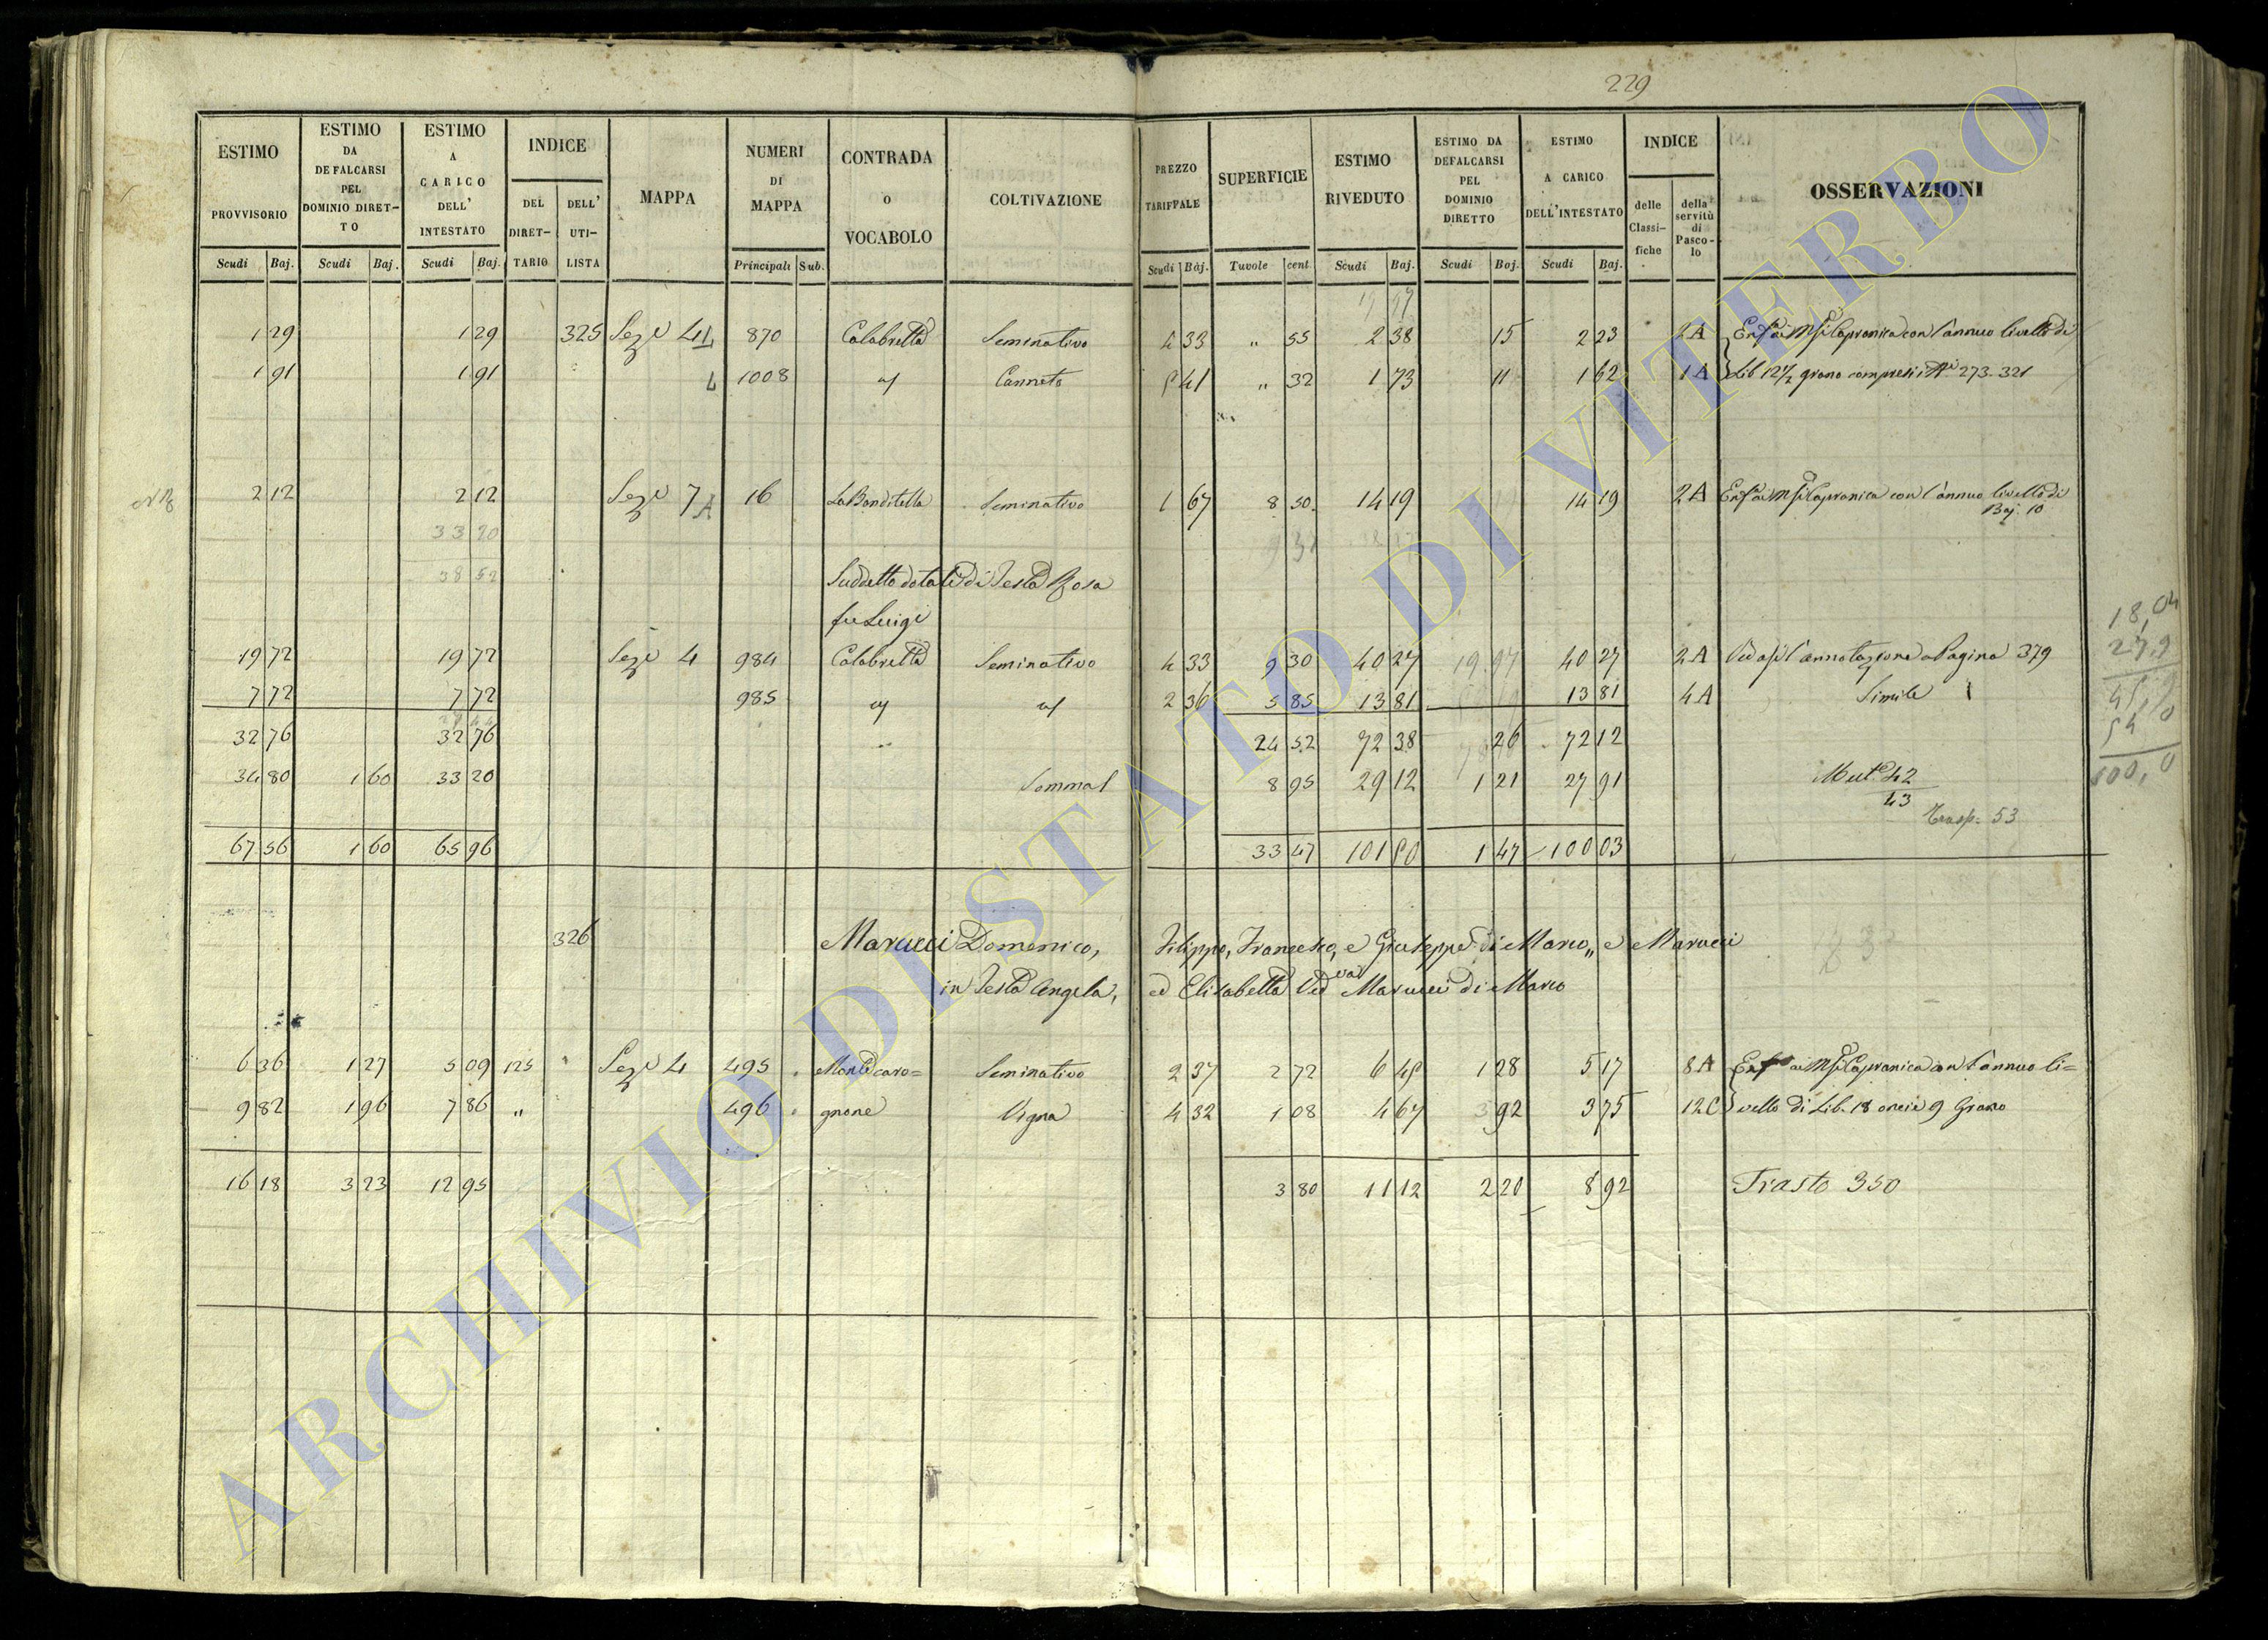 229
ESTIMO PROVVISORIO Scudi Baj.
ESTIMO DA DEFALCARSI PEL DOMINIO DIRET-TO Scudi Baj.
ESTIMO A CARICO DELL' INTESTATO Scudi Baj.
INDICE DEL DIRET-TARIO DELL' UTI-LISTA
MAPPA
NUMERI DI MAPPA Principali Sub.
CONTRADA o VOCABOLO
COLTIVAZIONE
PREZZO TARIFFALE Scudi Baj.
SUPERFICIE Tuvole cent.
ESTIMO RIVEDUTO Scudi Baj.
ESTIMO DA DEFALCARSI PEL DOMINIO DIRETTO Scudi Baj.
ESTIMO A CARICO DELL'INTESTATO Scudi Baj.
INDICE delle Classi-fiche della servitù di Pasco-lo
OSSERVAZIONI
19 97
1 29 1 29 325 Sez.e 4 L 870 Calabretta Seminativo 4 33 " 55 2 38 15 2 23 2A con l'annuo livello di
1 91 1 91 L 1008 Canneto 5 41 " 32 1 73 11 1 62 1A Lib 12 1/2 grano compresi i 273. 321
2 12 2 12 Sez.e 7 A 16 La Banditella Seminativo 1 67 8 50 14 19 14 19 2A con l'annuo livello di
Baj. 10
33 20
38 52 Suddetto dotale di Testa Rosa
fu Luigi
19 72 19 72 Sez.e 4 984 Calabretta Seminativo 4 33 9 30 40 27 19 97 40 27 2A Vedasi l'annotazione a Pagina 379
7 72 7 72 985 2 36 5 85 13 81 13 81 4A Simile
32 76 32 76 24 52 72 38 26 72 12
34 80 1 60 33 20 Somma 8 95 29 12 1 21 27 91 Mut.e 42
43
Trasp. 53
67 56 1 60 65 96 33 47 101 50 1 47 100 03
18,04
27,9
100,0
326 Marucci Domenico, Filippo, Francesco, e Giuseppe di Marco „ e Marucci
in Testa Angela, ed Elisabetta Ved.va Marucci di Marco
6 36 1 27 5 09 125 Sez.e 4 495 Monte caro= Seminativo 2 37 2 72 6 45 1 28 5 17 8A con l'annuo li=
9 82 1 96 7 86 " 496 gnone Vigna 4 32 1 08 4 67 92 3 75 12C vello di Lib. 18 oncie 9 Grano
16 18 3 23 12 95 3 80 11 12 2 20 8 92 Trasto 350
ARCHIVIO DI STATO DI VITERBO